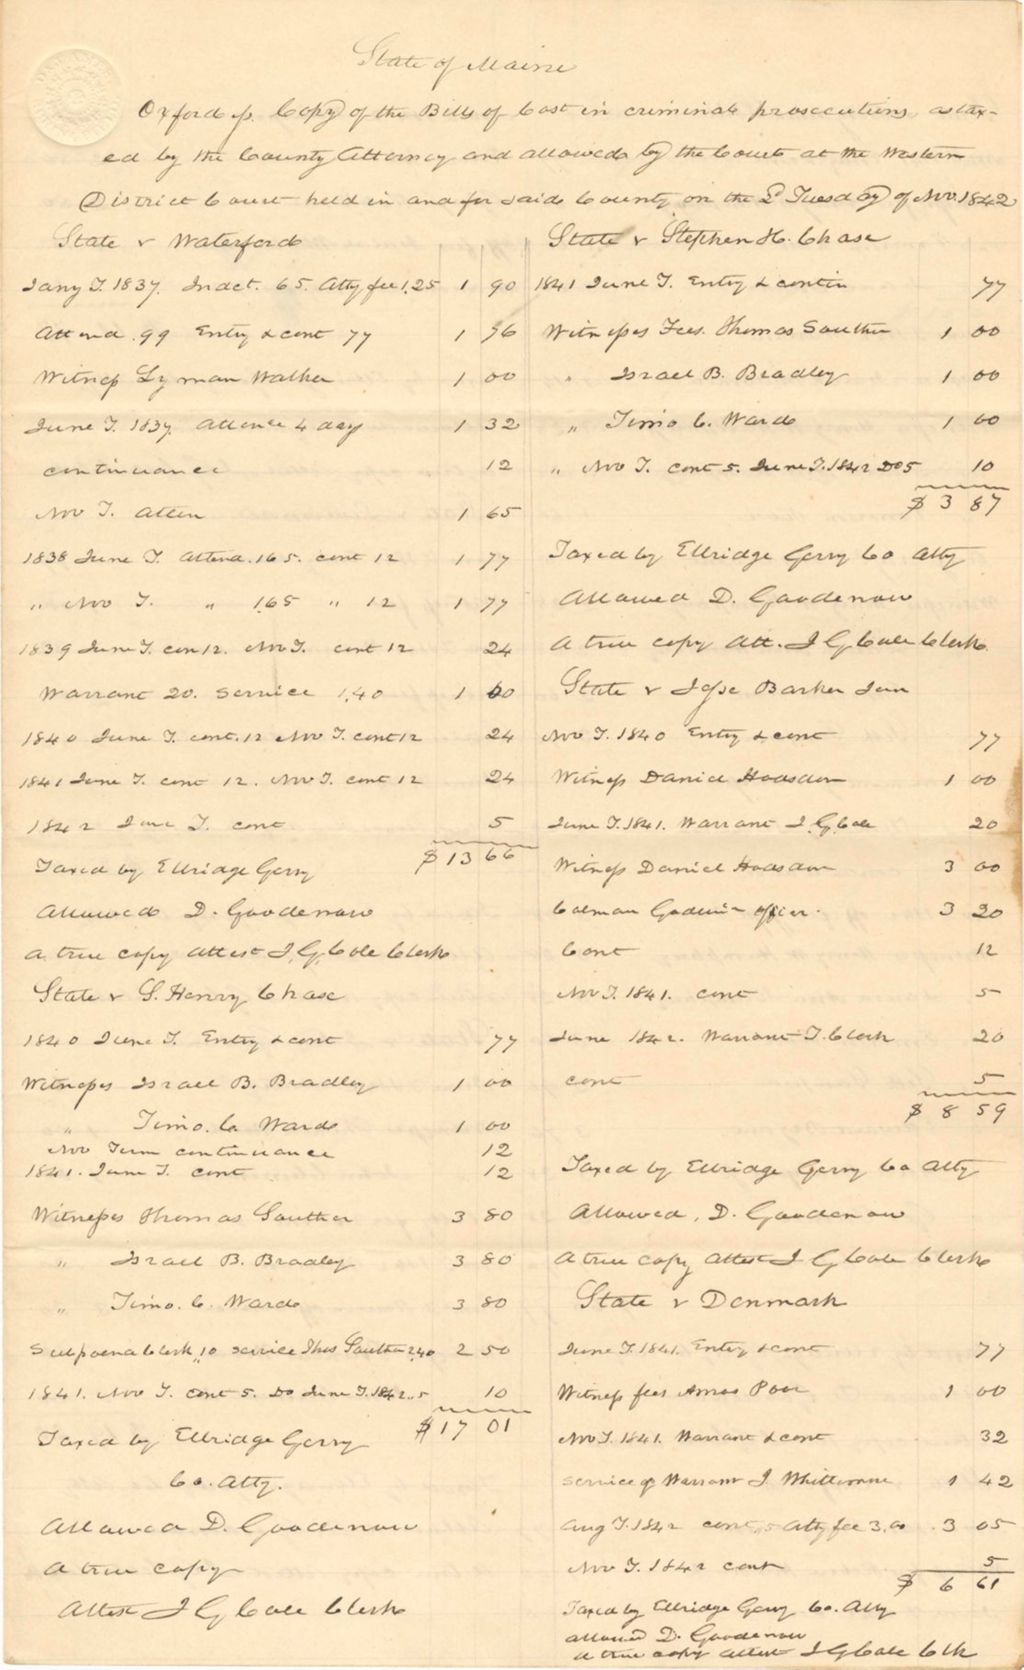 State of Maine
Oxford ss. Copy of the Bills of Cost in criminal prosecutions, as tax-
ed by the County Attorney and allowed by the Court at the Western
District Court held in and for said County on the 2d Tuesday of Nov. 1842
State v Waterford
Jany T. 1837. Indct. 65. Atty fee 1,25 1 90
Attend. 99 Entry & cont 77 1 76
Witness Lyman Walker 1 00
June T. 1837. Attence 4 day 1 32
continuance 12
Nov T. Atten 1 65
1838 June T. Attend. 165. cont 12 1 77
" Nov T. " 1,65 " 12 1 77
1839 June T. con 12. Nov T. cont 12 24
Warrant 20. Service 1,40 1 60
1840 June T. cont. 12 Nov T. cont 12 24
1841 June T. cont 12. Nov T. cont 12 24
1842 June T. cont 5
$13 66
Taxed by Elbridge Gerry
Allowed D. Goodenow
A true copy Attest J. G. Cole Clerk
State v S. Henry Chase
1840 June T. Entry & cont 77
Witnesses Israel B. Bradley 1 00
" Timo. C. Ward 1 00
Nov Term continuance 12
1841. June T. cont 12
Witnesses Thomas Souther 3 80
" Israel B. Bradley 3 80
" Timo. C. Ward 3 80
Subpoena Clerk ,,10 Service Thos Souther 2,40 2 50
1841. Nov T. cont 5. Do June T. 1842 ,,5 10
$17 01
Taxed by Elbridge Gerry
Co. Atty.
Allowed D. Goodenow
A true copy
Attest J G Cole Clerk
State v Stephen H. Chase
1841 June T. Entry & contin 77
Witnesses Fees. Thomas Souther 1 00
" Israel B. Bradley 1 00
" Timo C. Ward 1 00
" Nov T. cont 5. June T. 1842 Do 5 10
$3 87
Taxed by Elbridge Gerry Co Atty
Allowed D. Goodenow
A true copy Att. J G Cole Clerk.
State v Jesse Barker Jun
Nov T. 1840 Entry & cont 77
Witness Daniel Hodsdon 1 00
June T. 1841. Warrant J. G. Cole 20
Witness Daniel Hodsdon 3 00
Colman Godwin officer. 3 20
Cont 12
Nov T. 1841. cont 5
June 1842. Warrant J. Clerk 20
cont 5
$8 59
Taxed by Elbridge Gerry Co Atty
Allowed, D. Goodenow
A true copy Attest J G Cole Clerk
State v Denmark
June T. 1841. Entry & cont 77
Witness fees Amos Poor 1 00
Nov T. 1841. Warrant & cont 32
Service of Warrant J 1 42
Aug T. 1842 cont ,,5 Atty fee 3,00 3 05
Nov T. 1842 cont 5
$6 61
Taxed by Elbridge Gerry Co. Atty
allowed D. Goodenow
A true copy attest J G Cole Clk